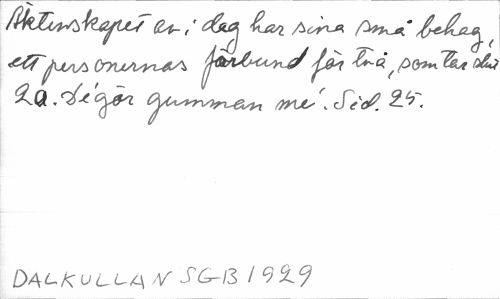 Äktenskapet av i dag har sina små behag,
ett personernas förbund för två, som tar slut
2a. Dé gör gumman mé. Sid. 25.
DALKULLAN SGB 1929